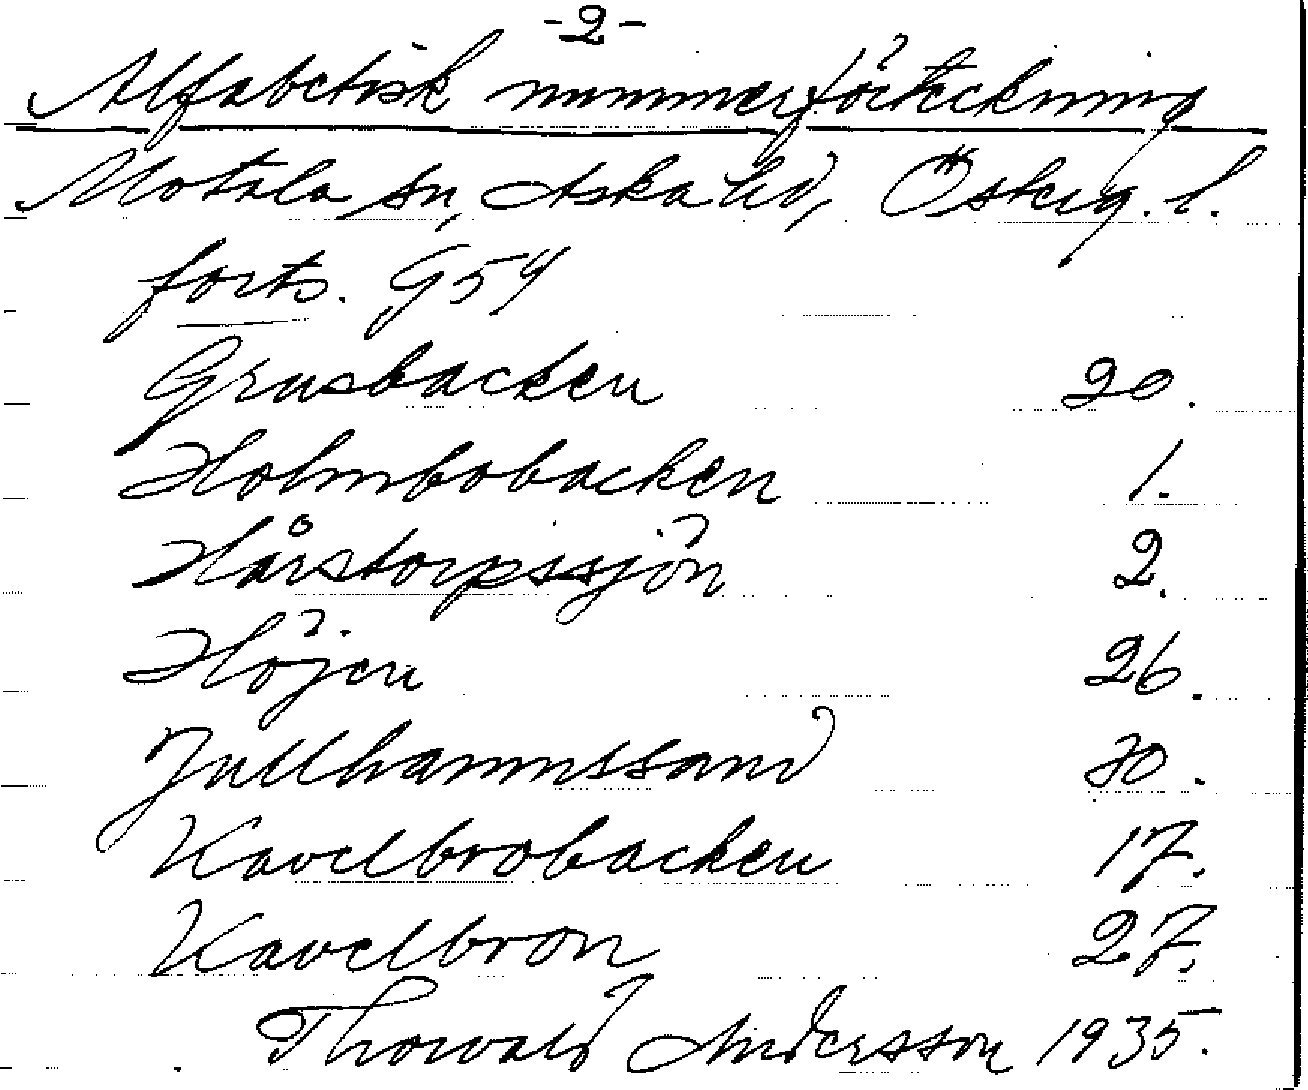 -2-
Alfabetisk nummerförteckning
Motala sn, Aska hd, Österg. l.
forts. G54
Grusbacken 20.
Holmbobacken 1.
Hårstorpssjön 2.
Höjen 26.
Jullhammssand 30.
Kavelbrobacken 17.
Kavelbron 27.
Thorvald Andersson 1935.